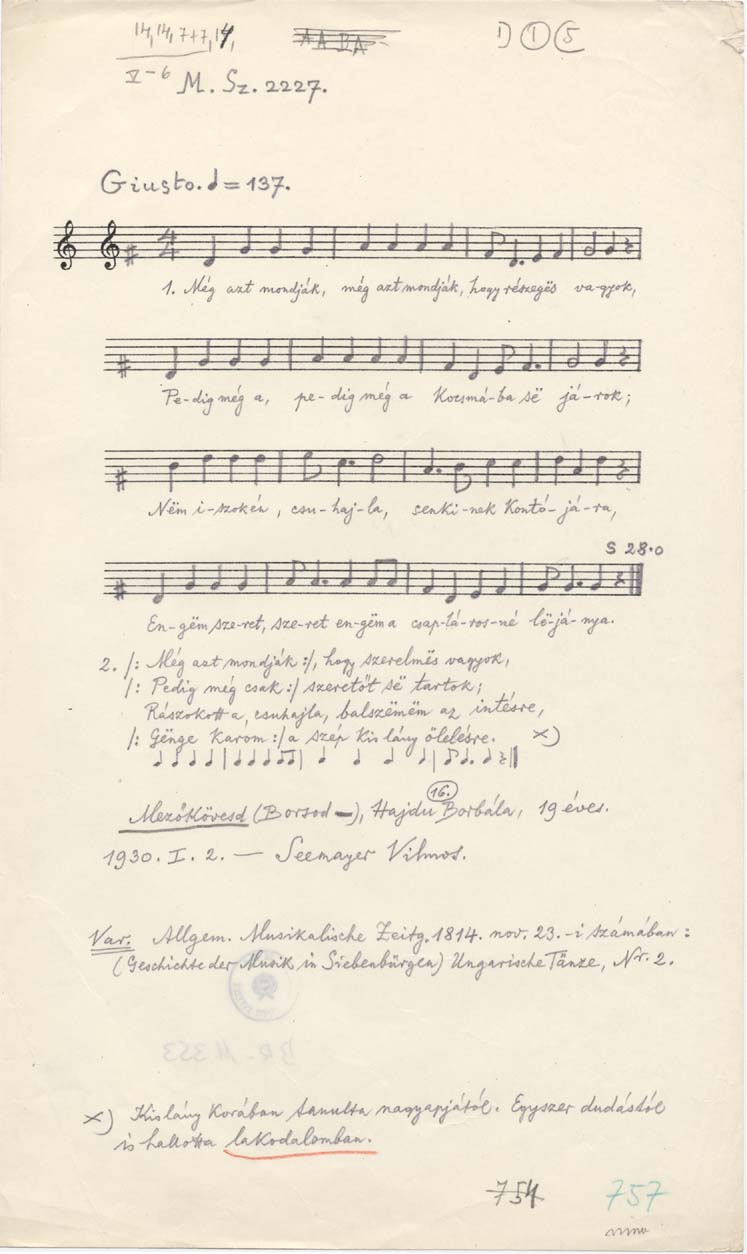 14, 14, 7+7, 14,
A A B A
1) ① 5
V-6
M. Sz. 2227.
Giusto. ♩ = 137.
4/4
1. Még azt mondják, még azt mondják, hogy részegës va-gyok,
Pe-dig még a, pe-dig még a Kocsmá-ba së já-rok;
Nëm i-szok én, csu-haj-la, senki-nek Kontó-já-ra,
S 28.0
En-gëm sze-ret, sze-ret en-gëm a csap-lá-ros-né lë-já-nya.
2. /: Még azt mondják :/, hogy szerelmës vagyok,
/: Pedig még csak :/ szeretőt së tartok;
Rászokott a, csuhajla, balszëmëm az intésre,
/: Gënge Karom :/ a szép Kislány ölelésre. x)
16.
Mezőkövesd (Borsod –), Hajdu Borbála, 19 éves.
1930. I. 2. — Seemayer Vilmos.
Var. Allgem. Musikalische Zeitg. 1814. nov. 23.-i számában:
(Geschichte der Musik in Siebenbürgen) Ungarische Tänze, Nr. 2.
BR-11353
x) Kislány Korában tanulta nagyapjától. Egyszer dudástól
is hallotta lakodalomban.
754 757